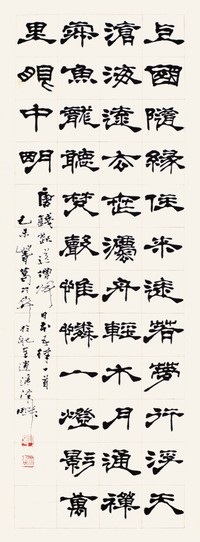 上國隨緣住來途若夢行浮天
滄海遠去世灋舟輕水月通禪
寂魚龍聽梵聲惟憐一燈影萬
里眼中明
唐錢起送僧歸日本五律一首
乙未